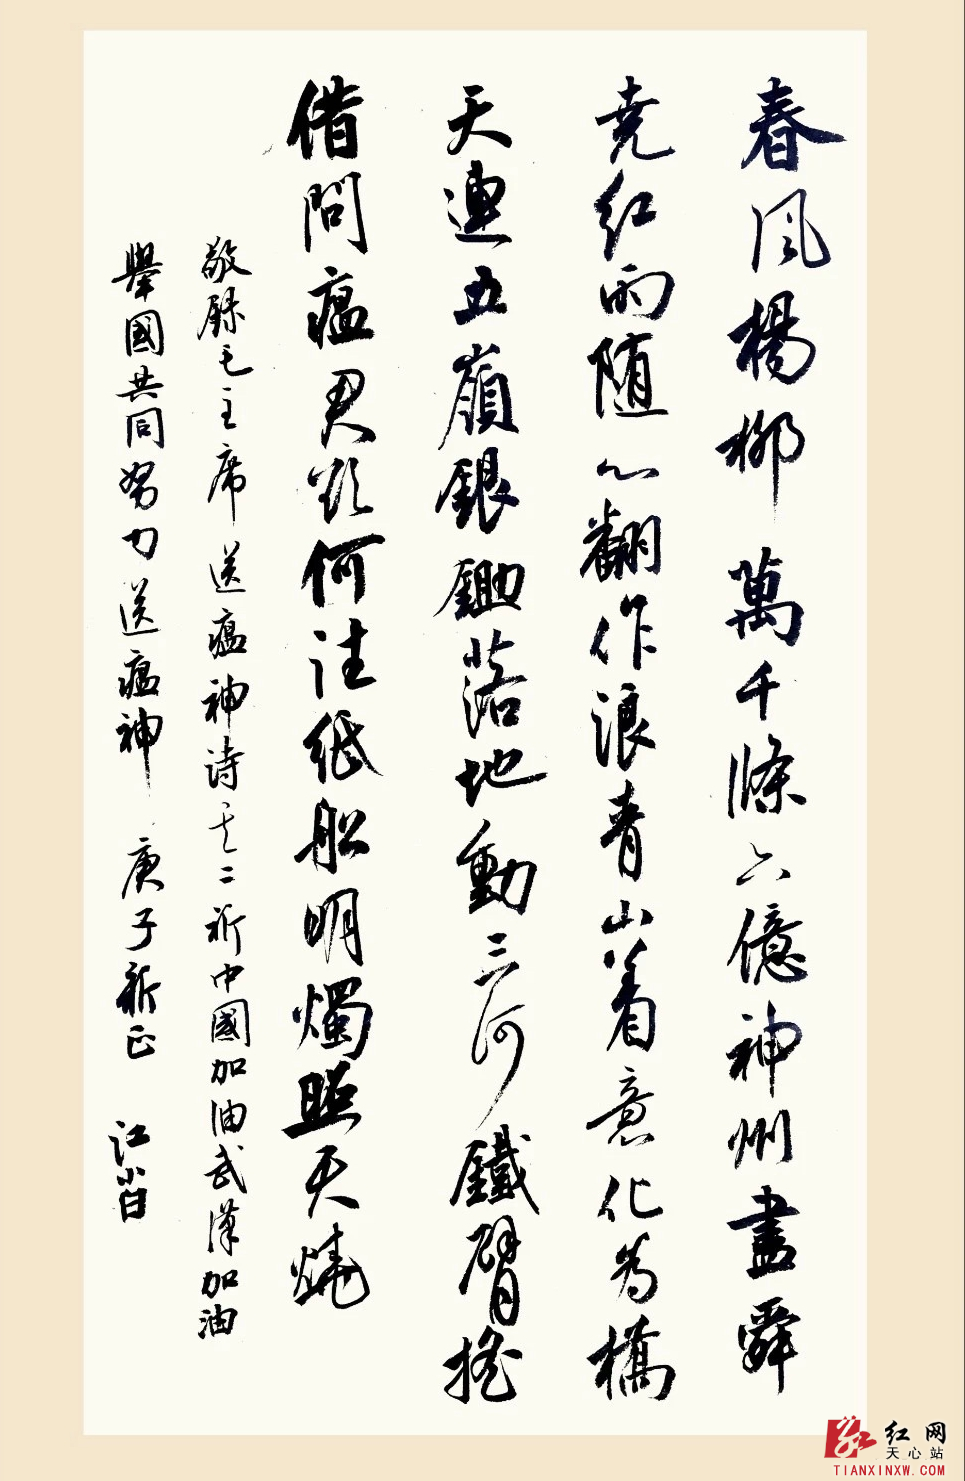 春風楊柳萬千條六億神州盡舜
堯紅雨随心翻作浪青山着意化为橋
天連五嶺銀鋤落地動三河鐵臂搖
借問瘟君欲何往纸船明燭照天燒
敬録毛主席送瘟神诗其二祈中國加油武漢加油
舉國共同努力送瘟神 庚子新正 江小白
红网
天心站
TIANXINXW.COM